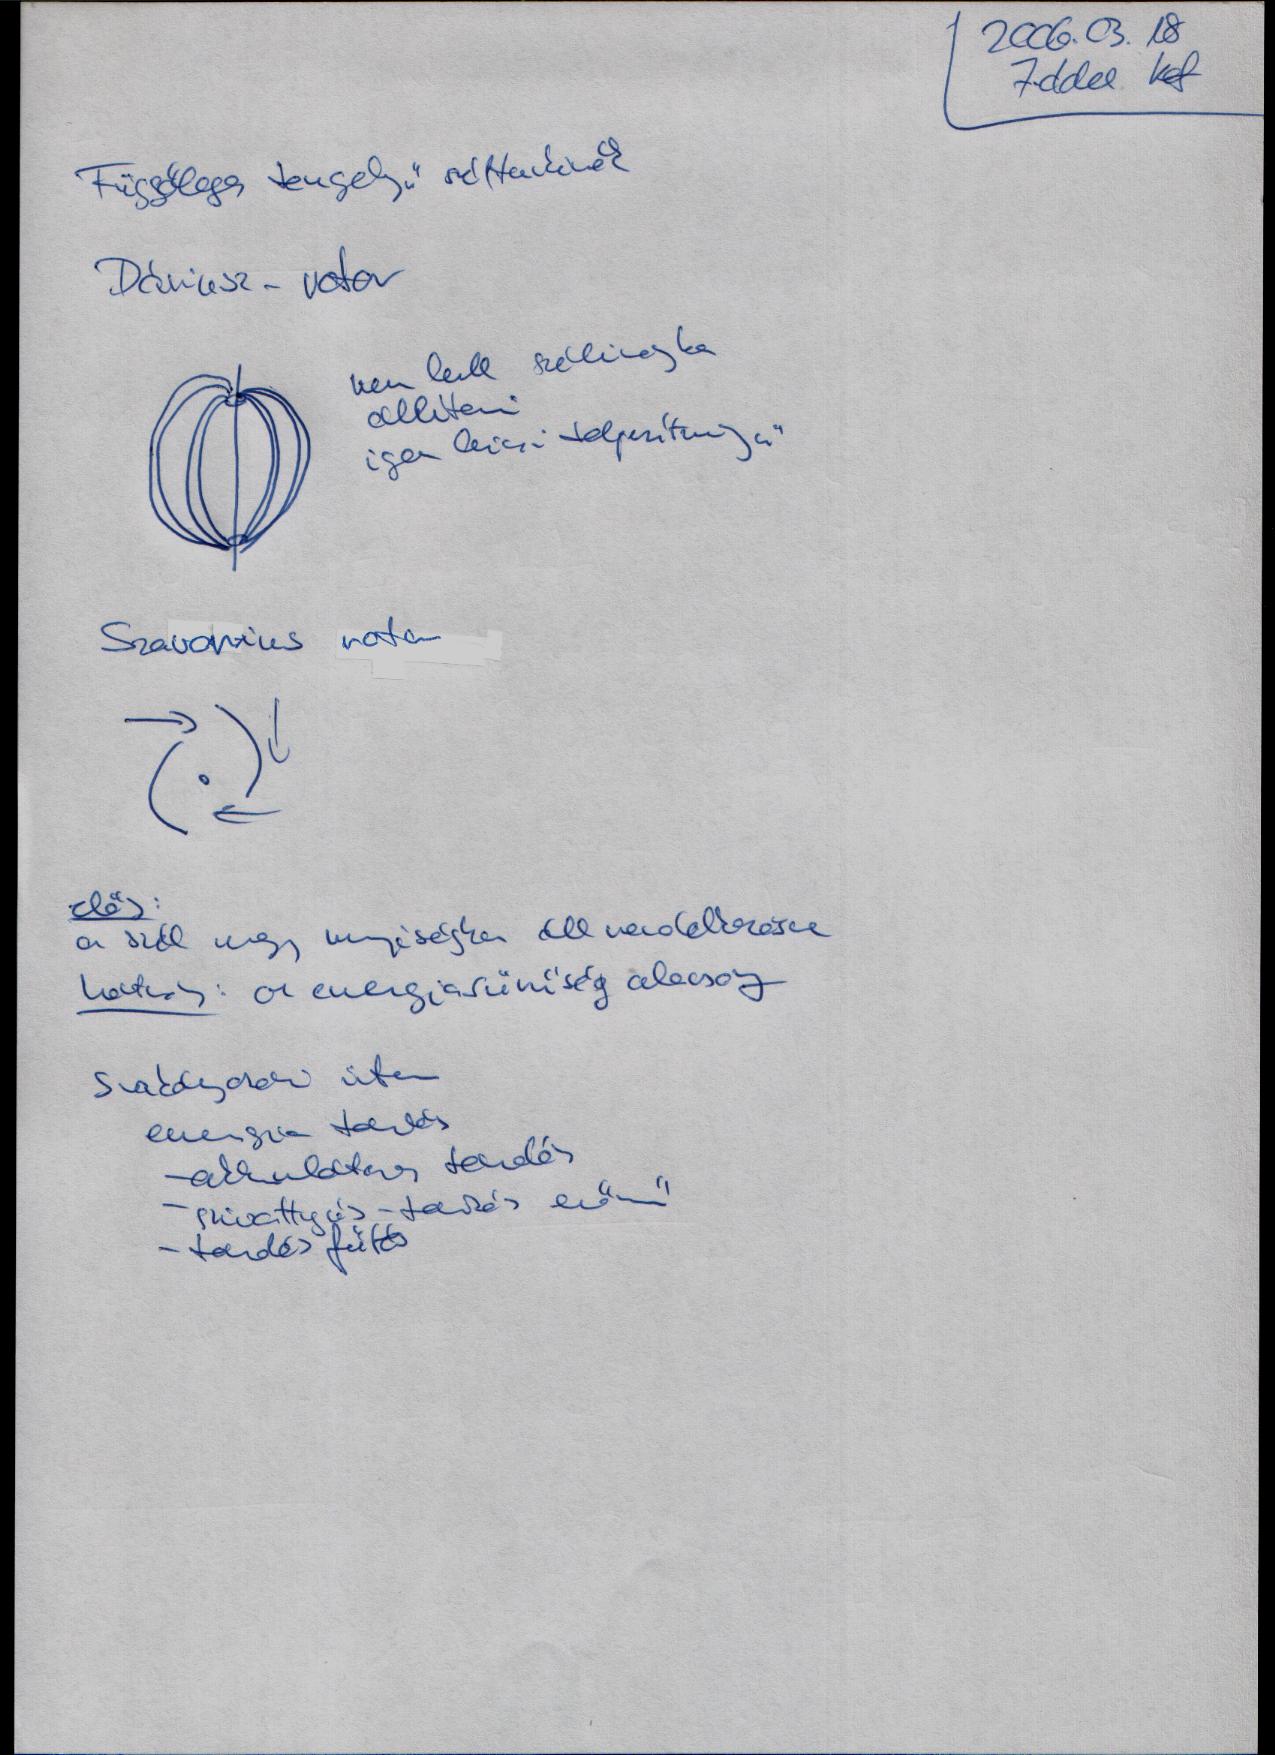 2006.03.18
Függőleges tengelyű szélturbinák
Dáriusz - rotor
nem kell szélirányba
állítani
igen kicsi teljesítményű
Szavoniusz rotor
előny:
a szél nagy mennyiségben áll rendelkezésre
hátrány: az energiasűrűség alacsony
üzem
energia tárolás
-akkumulátoros tárolás
-szivattyús-tározós erőmű
-tárolós fűtés